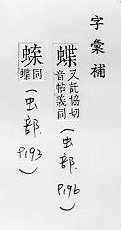 字彙補
蝶 又託協切音帖義同
(虫部. P.196)
𧍒 同蠟
(虫部. P.193)